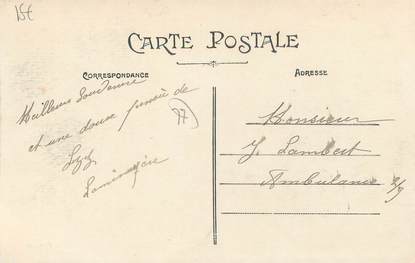 15€
CARTE POSTALE
CORRESPONDANCE
ADRESSE
Meilleurs Souvenirs
et une douce pensée de
77
Monsieur
J. Lambert
Ambulance